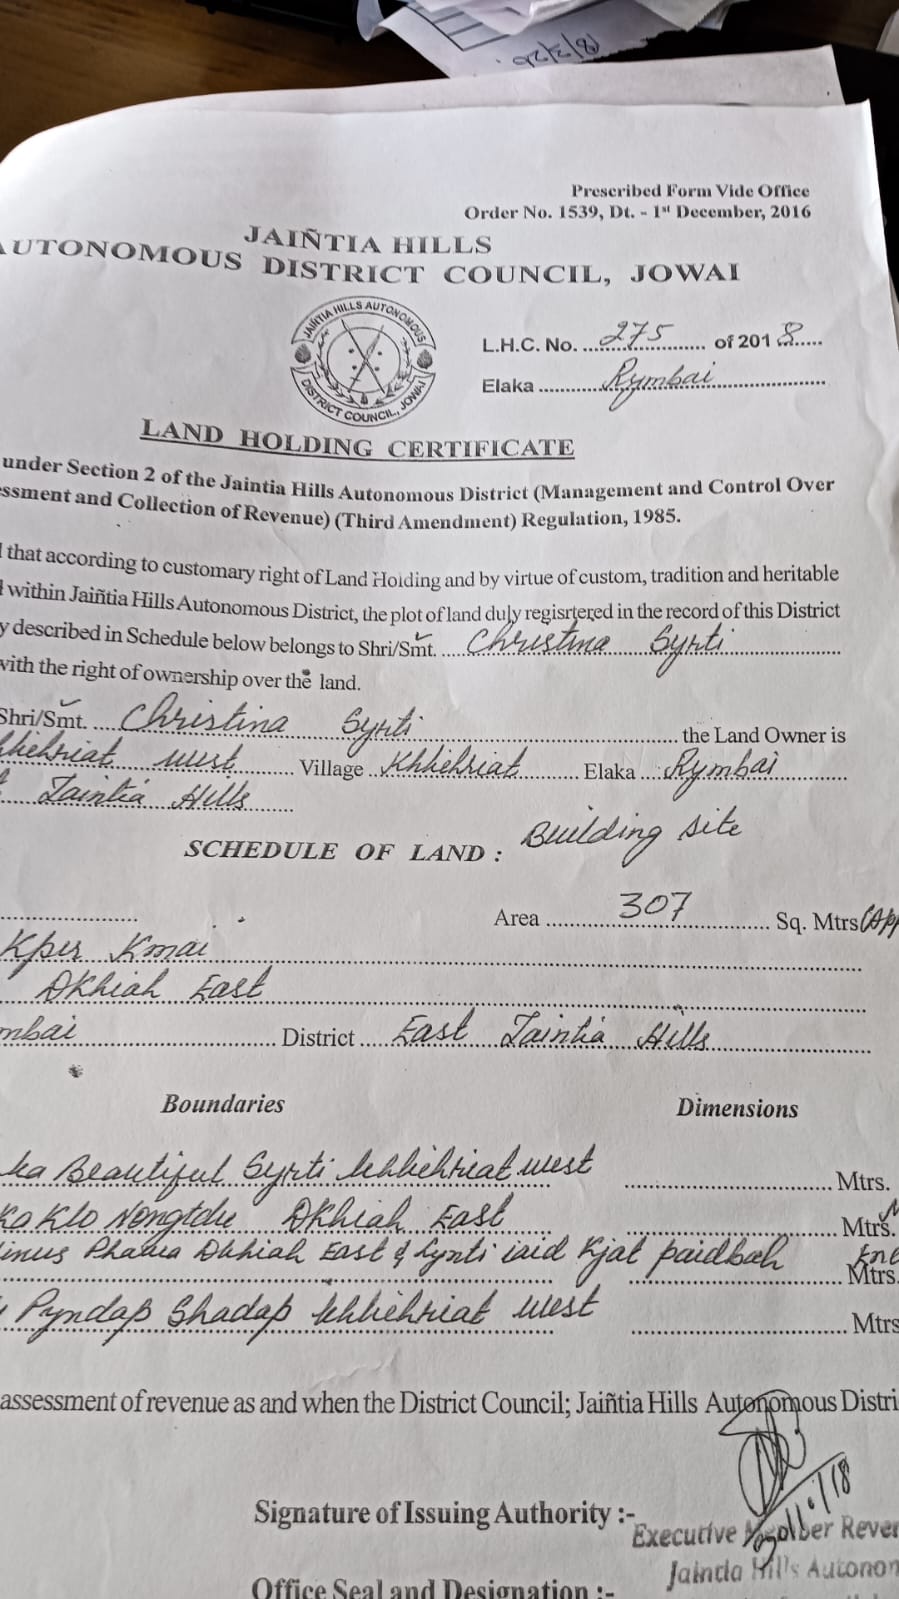 18/3/20
Prescribed Form Vide Office
Order No. 1539, Dt. - 1st December, 2016
JAIÑTIA HILLS
AUTONOMOUS DISTRICT COUNCIL, JOWAI
JAIÑTIA HILLS AUTONOMOUS
DISTRICT COUNCIL, JOWAI
L.H.C. No. 275 of 2018
Elaka Rymbai
LAND HOLDING CERTIFICATE
under Section 2 of the Jaintia Hills Autonomous District (Management and Control Over
essment and Collection of Revenue) (Third Amendment) Regulation, 1985.
that according to customary right of Land Holding and by virtue of custom, tradition and heritable
within Jaiñtia Hills Autonomous District, the plot of land duly regisrtered in the record of this District
y described in Schedule below belongs to Shri/Smt. Christina Syrti
with the right of ownership over the land.
Shri/Smt. Christina Syrti the Land Owner is
khliehriat west Village Khliehriat Elaka Rymbai
Jaintia Hills
SCHEDULE OF LAND : Building site
Area 307 Sq. Mtrs (App
Kper Kmai
Dkhiah East
mbai District East Jaintia Hills
Boundaries Dimensions
ka Beautiful Syrti khliehriat west Mtrs.
Ka Klo Nongtdu Dkhiah East Mtrs.
inus Phawa Dkhiah East & Lynti iaid Kjat paidbah
Mtrs
Pyndap Shadap khliehriat west Mtrs
assessment of revenue as and when the District Council; Jaiñtia Hills Autonomous Distri
Signature of Issuing Authority :-
Executive Rever
Hills Autonom
Office Seal and Designation :-